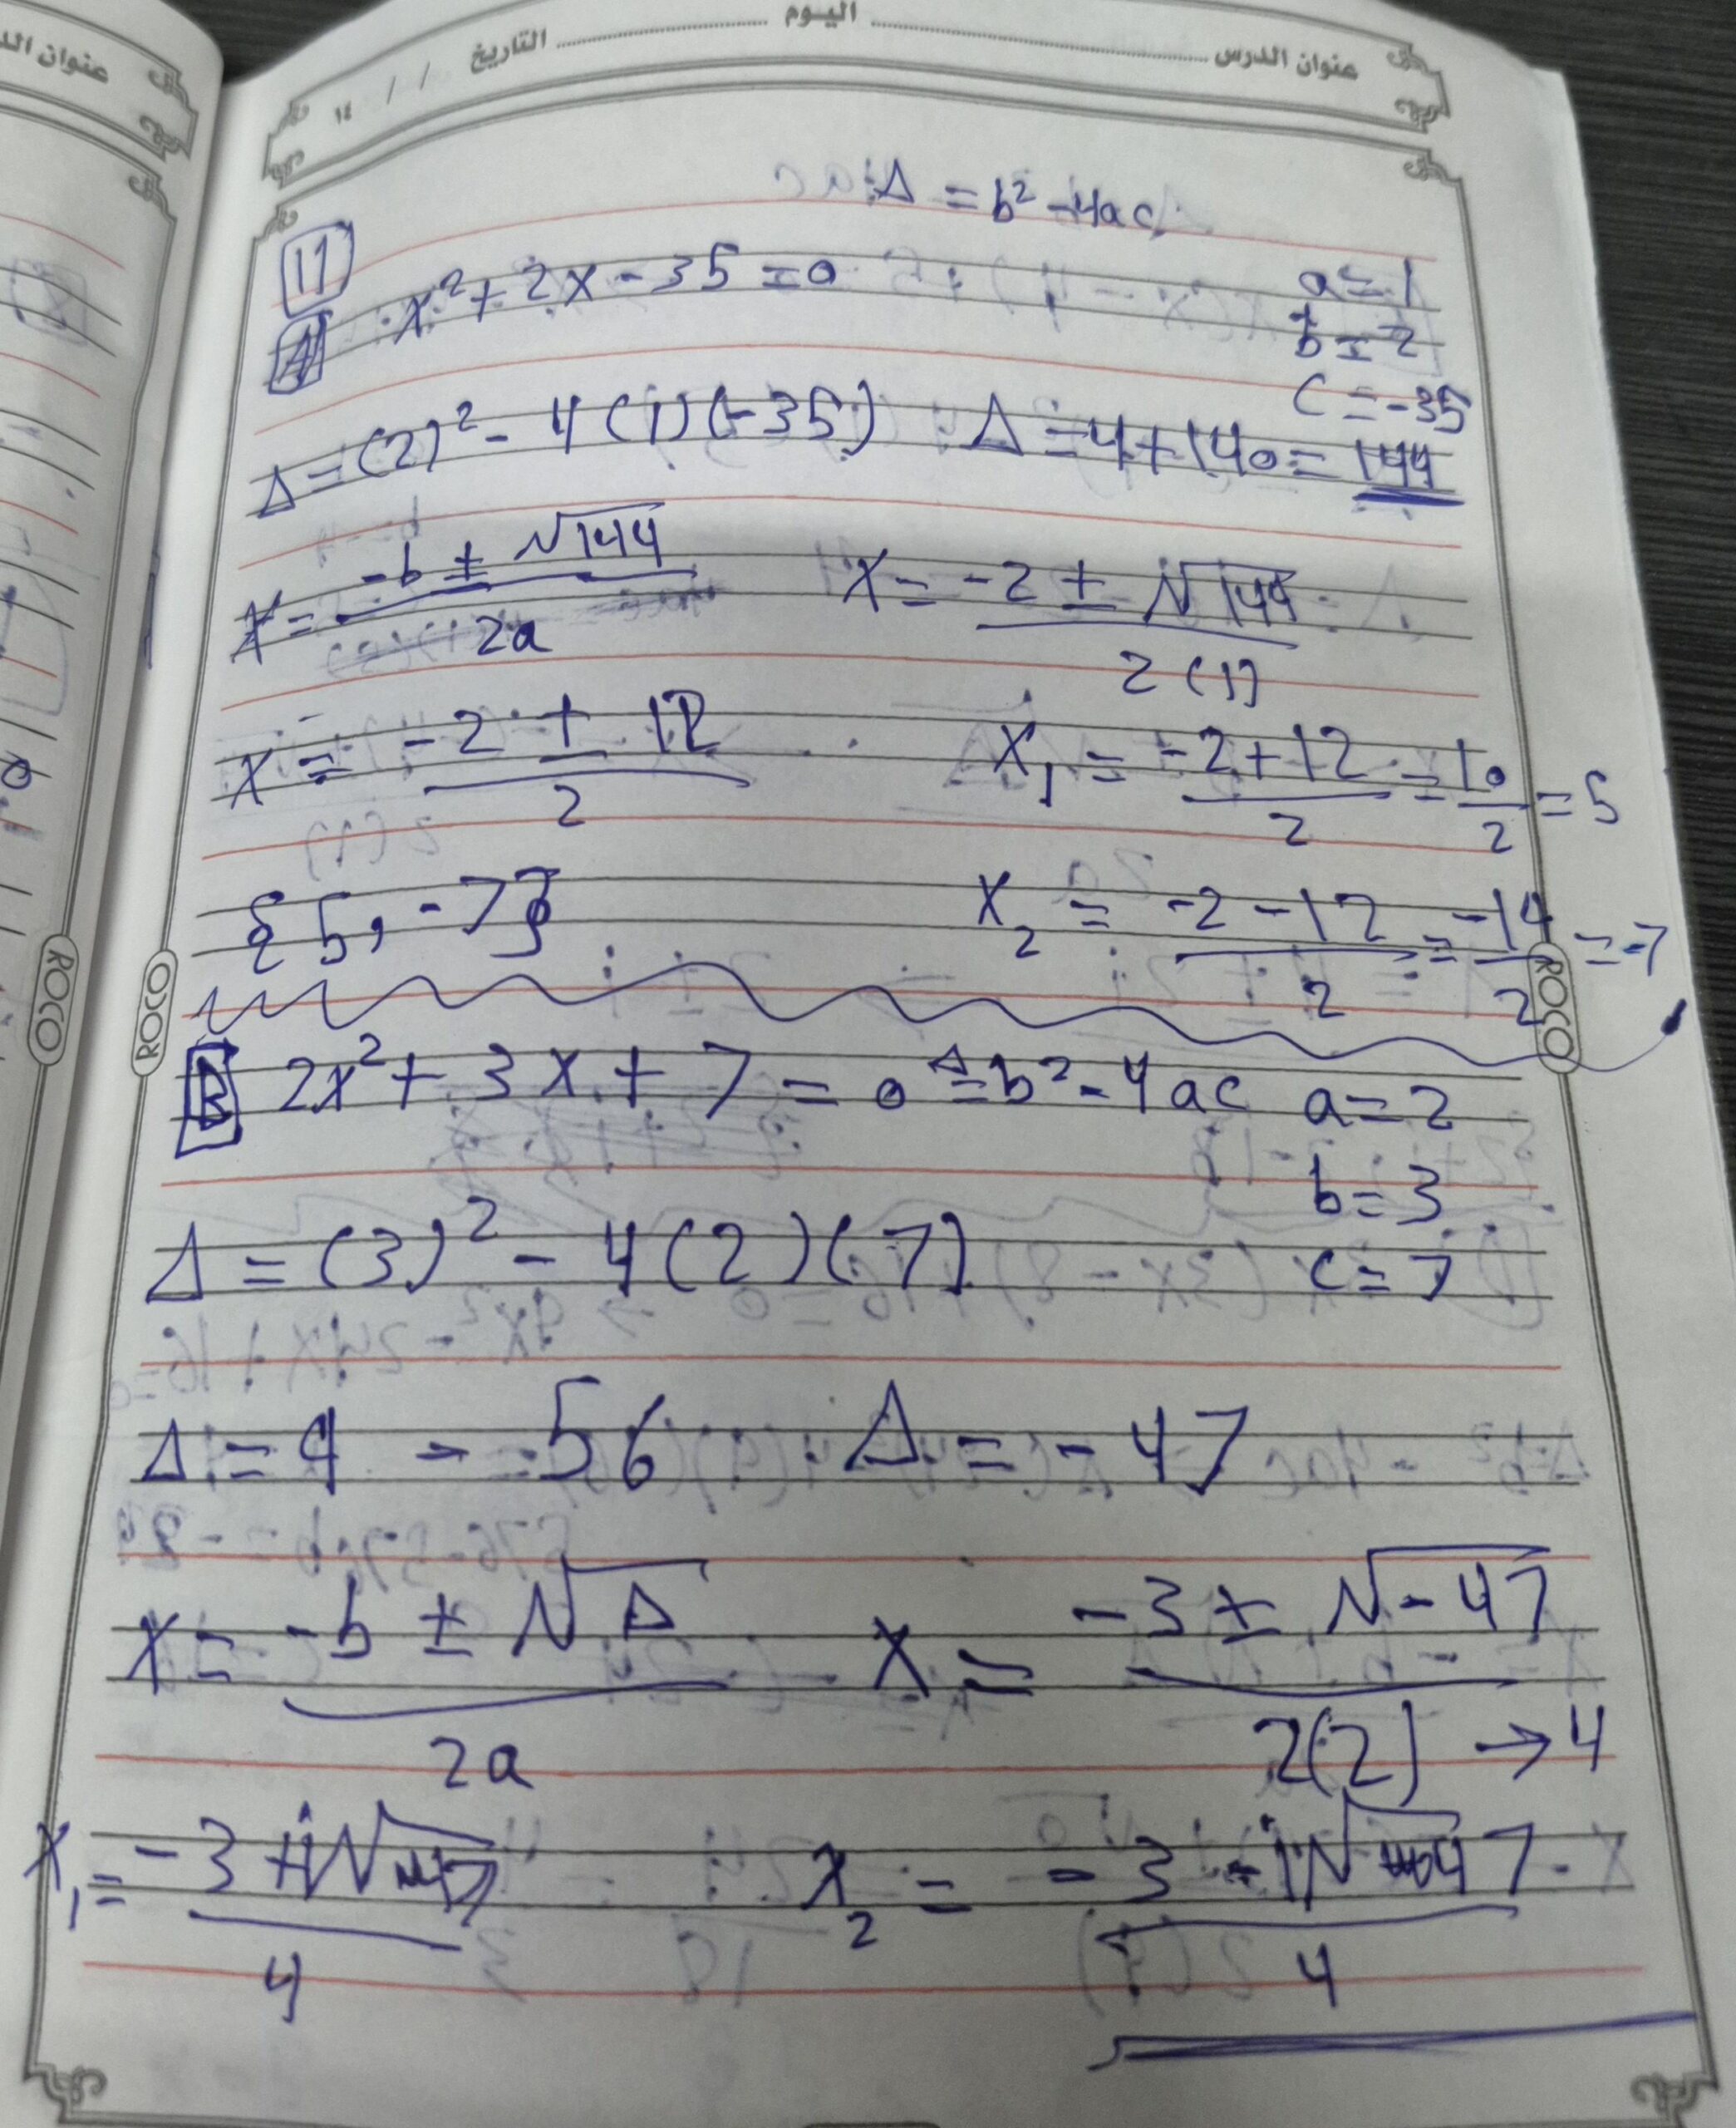 عنوان الدرس ........ اليوم ........ التاريخ / / ١٤
عنوان الد
Δ = b² - 4ac
11
A x² + 2x - 35 = 0
a = 1
b = 2
c = -35
Δ = (2)² - 4(1)(-35) Δ = 4 + 140 = 144
x = (-b ± √144) / 2a x = (-2 ± √144) / 2(1)
x = (-2 ± 12) / 2 x₁ = (-2 + 12) / 2 = 10 / 2 = 5
{5, -7} x₂ = (-2 - 12) / 2 = -14 / 2 = -7
ROCO ROCO ROCO
B 2x² + 3x + 7 = 0 Δ = b² - 4ac a = 2
b = 3
Δ = (3)² - 4(2)(7) c = 7
Δ = 9 - 56 Δ = -47
x = (-b ± √Δ) / 2a x = (-3 ± √-47) / 2(2) → 4
x₁ = (-3 + i√47) / 4 x₂ = (-3 - i√47) / 4